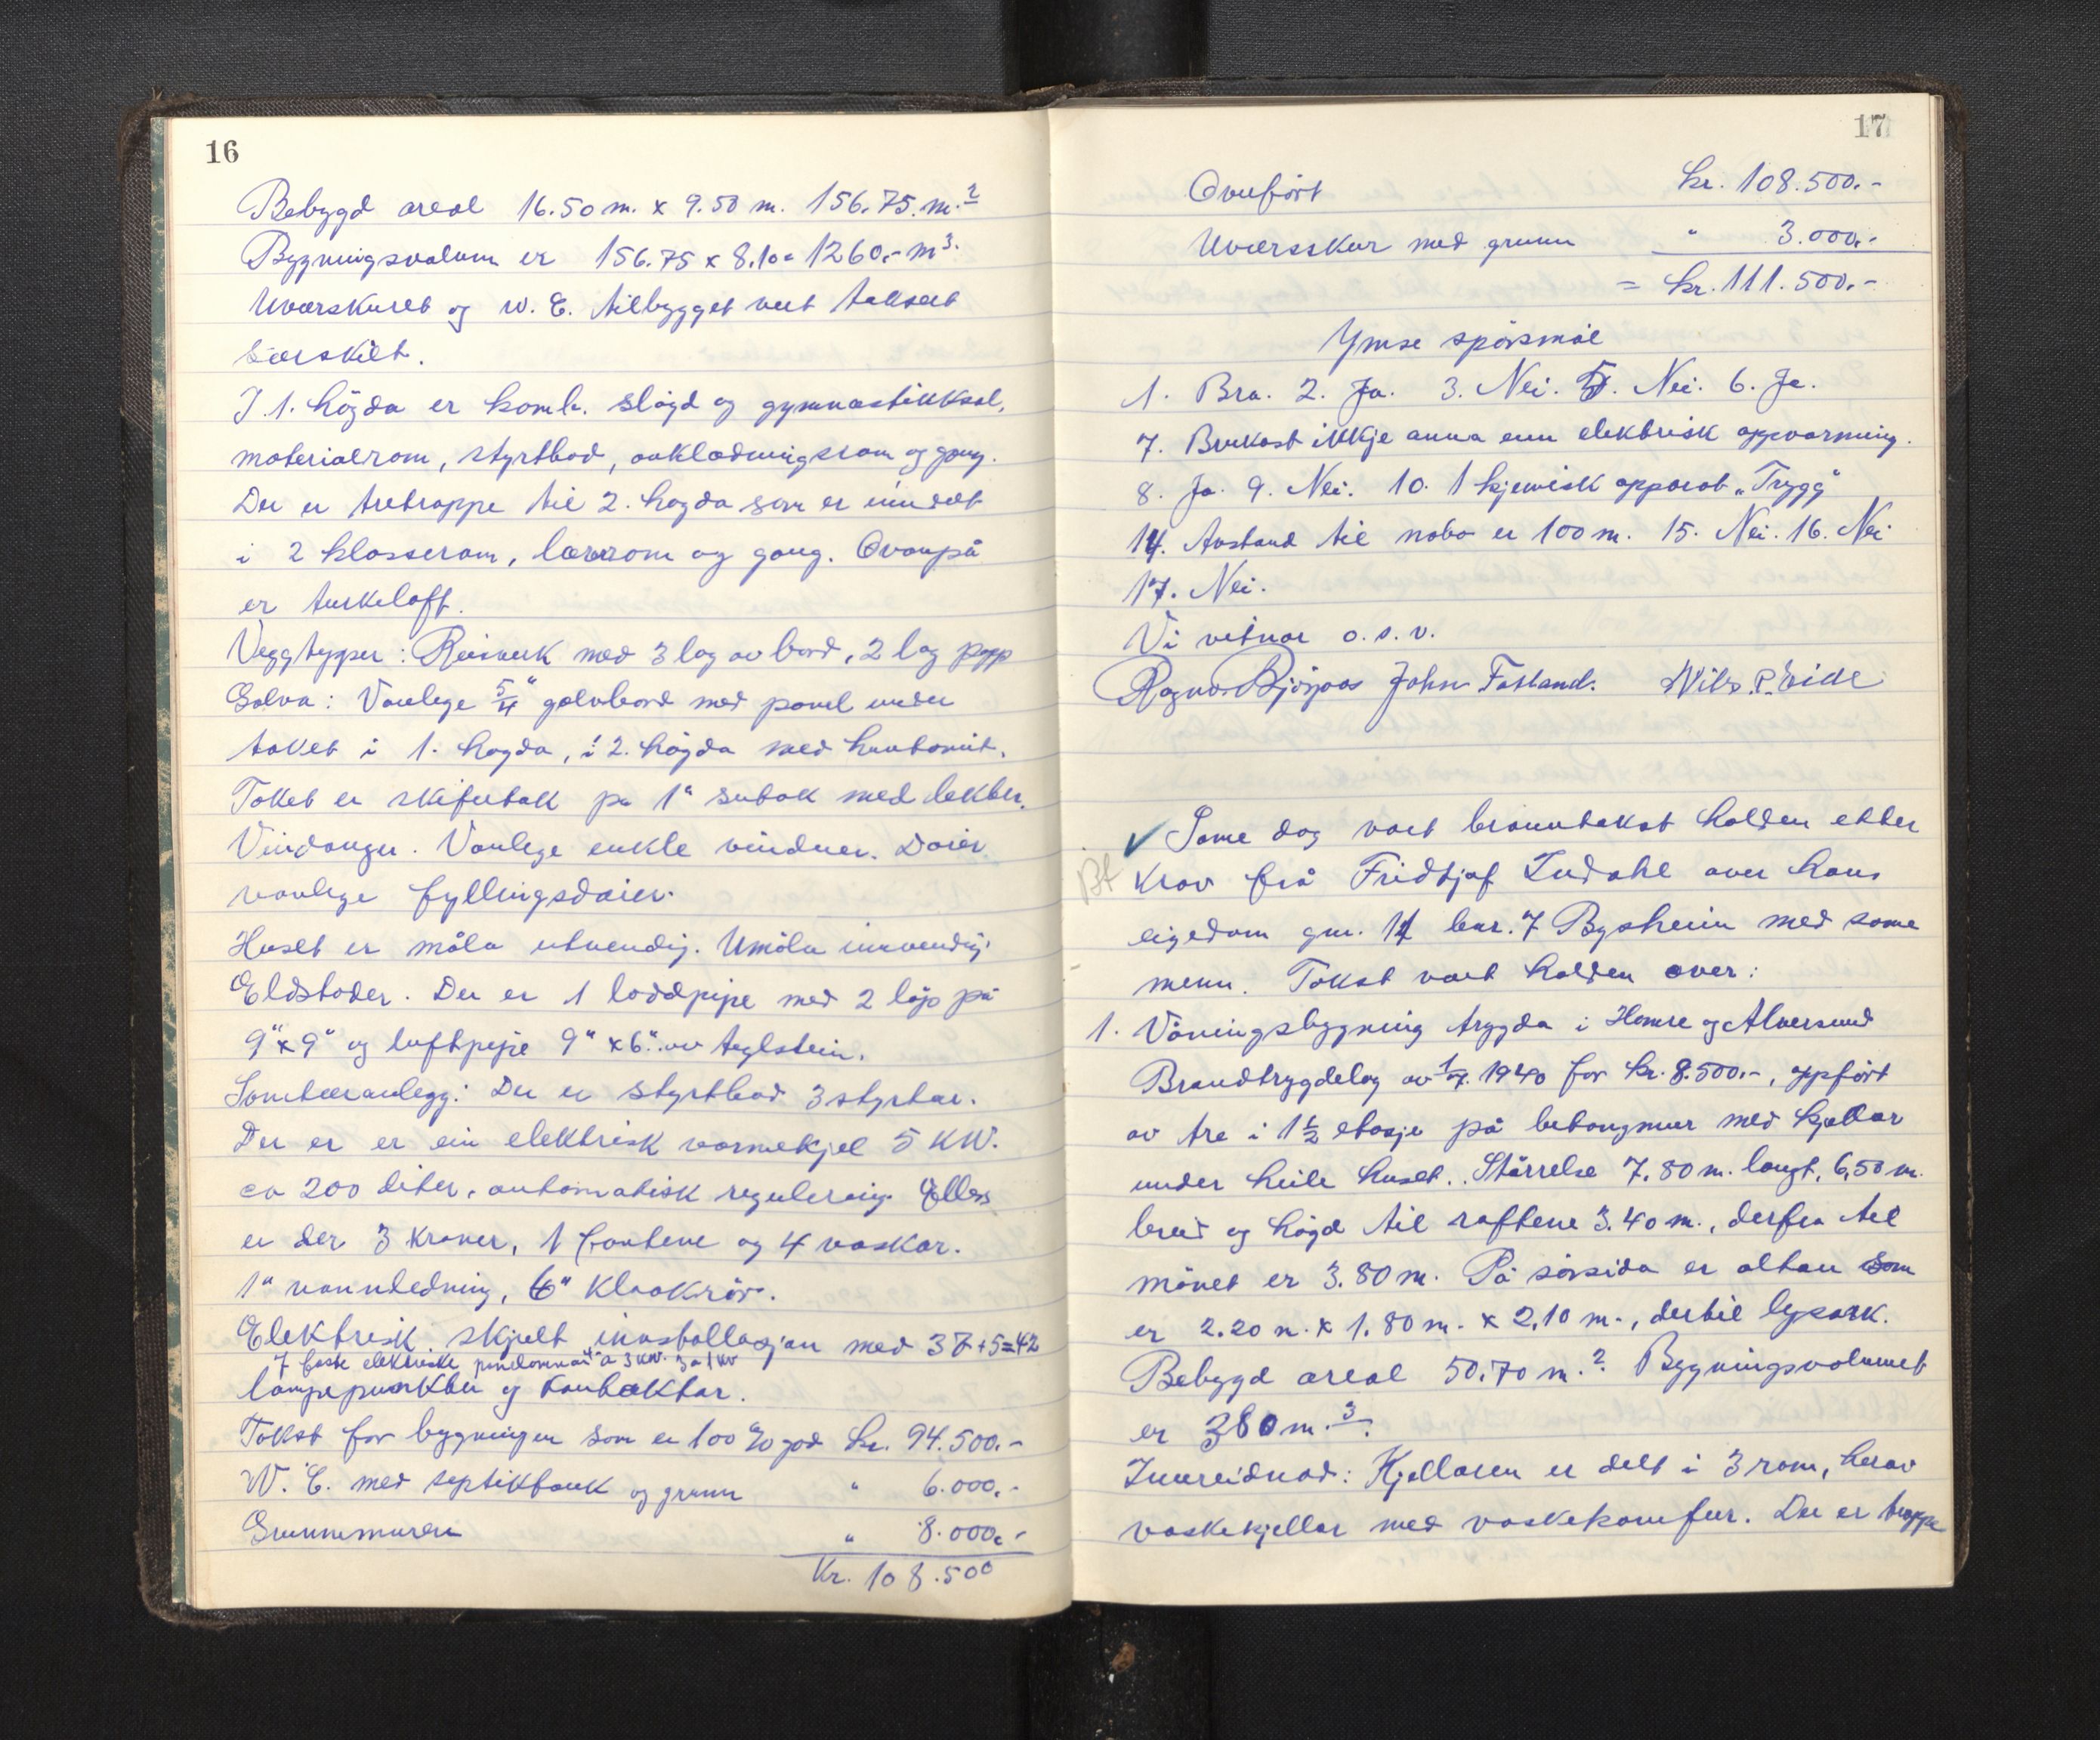 16
Bebygd areal 16.50 m. x 9.50 m. 156.75. m.²
Bygningsvolum er 156.75 x 8.10 = 1260.- m³.
Uværskuret og W. C. tilbygget vert taksert
særskilt.
I 1. högda er komb. slöyd og gymnastikksal,
materialrom, styrtbad, avklædningsrom og gang.
Der er tretrappe til 2. högda som er inndelt
i 2 klasserom, lærerrom og gang. Ovanpå
er turkeloft.
Veggtyper: Reisverk med 3 lag av bord, 2 lag papp
Golva: Vanlege 5/4" golvbord med panel under
taket i 1. högda, i 2. högda med huntonit.
Taket er skifertak på 1" sutak med lekter.
Vindauger. Vanlege enkle vinduer. Dører
vanlege fyllingsdører.
Huset er måla utvendig. Umåla innvendig.
Eldstader. Der er 1 loddpipe med 2 löp på
9" x 9" og luftpipe 9" x 6" av teglstein.
Sanitæranlegg: Der er styrtbad 3 styrtar.
Der er er ein elektrisk varmekjel 5 KW.
ca 200 liter, automatisk regulering. Elles
er der 3 kraner, 1 fontene og 4 vaskar.
1" vannledning, 6" kloakrör.
Elektrisk skjult innstallasjon med 37+5=42
7 faste elektriske panelomnar 4 a 3 KW. 3 a 1 KW
lampepunkter og kontaktar.
Takst for bygningen som er 100 % god kr. 94.500.-
W. C. med septiktank og grunn " 6.000.-
Grunnmuren " 8.000.-
Kr. 108.500
17
Overfört kr. 108.500.-
Uværsskur med grunn " 3.000.-
= kr. 111.500.-
Ymse spörsmål
1. Bra. 2. Ja. 3. Nei. 5. Nei. 6. Ja.
7. Brukast ikkje anna enn elektrisk oppvarming.
8. Ja. 9. Nei. 10. 1 kjemisk apparat „Trygg"
14. Avstand til nabo er 100 m. 15. Nei. 16. Nei
17. Nei.
Vi vitnar o.s.v.
Ragnar John Fatland. Nils P. Eide
✓ Same dag vart branntakst halden etter
Bf
krav frå Fridtjof Indahl over hans
eigedom gnr. 14 bnr. 7 Bysheim med same
menn. Takst vart halden over:
1. Våningsbygning trygda i Hamre og Alversund
Brandtrygdelag av 1/7. 1940 for kr. 8.500.-, oppfört
av tre i 1 1/2 etasje på betongmur med kjellar
under heile huset. Störrelse 7,80 m. langt, 6,50 m.
breid og högd til raftene 3.40 m., derfra til
mönet er 3.80 m. På sörsida er altan som
er 2.20 m. x 1.80 m. x 2,10 m., dertil lysark.
Bebygd areal 50.70 m.² Bygningsvolumet
er 380 m.³.
Innreidnad: Kjellaren er delt i 3 rom, herav
vaskekjellar med vaskekomfur. Der er trappe